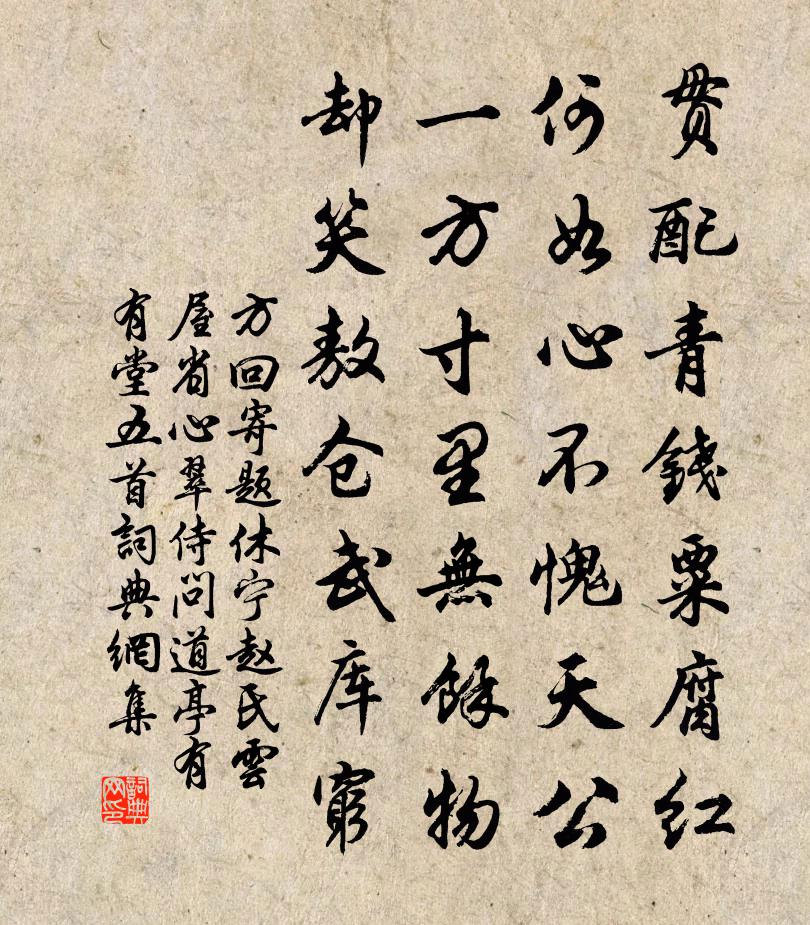 贯配青錢粟腐红
何如心不愧天公
一方寸里無餘物
却笑敖仓武库窮
方回寄题休宁赵氏雲
屋省心翠侍問道亭有
有堂五首詞典網集
詞典
网印